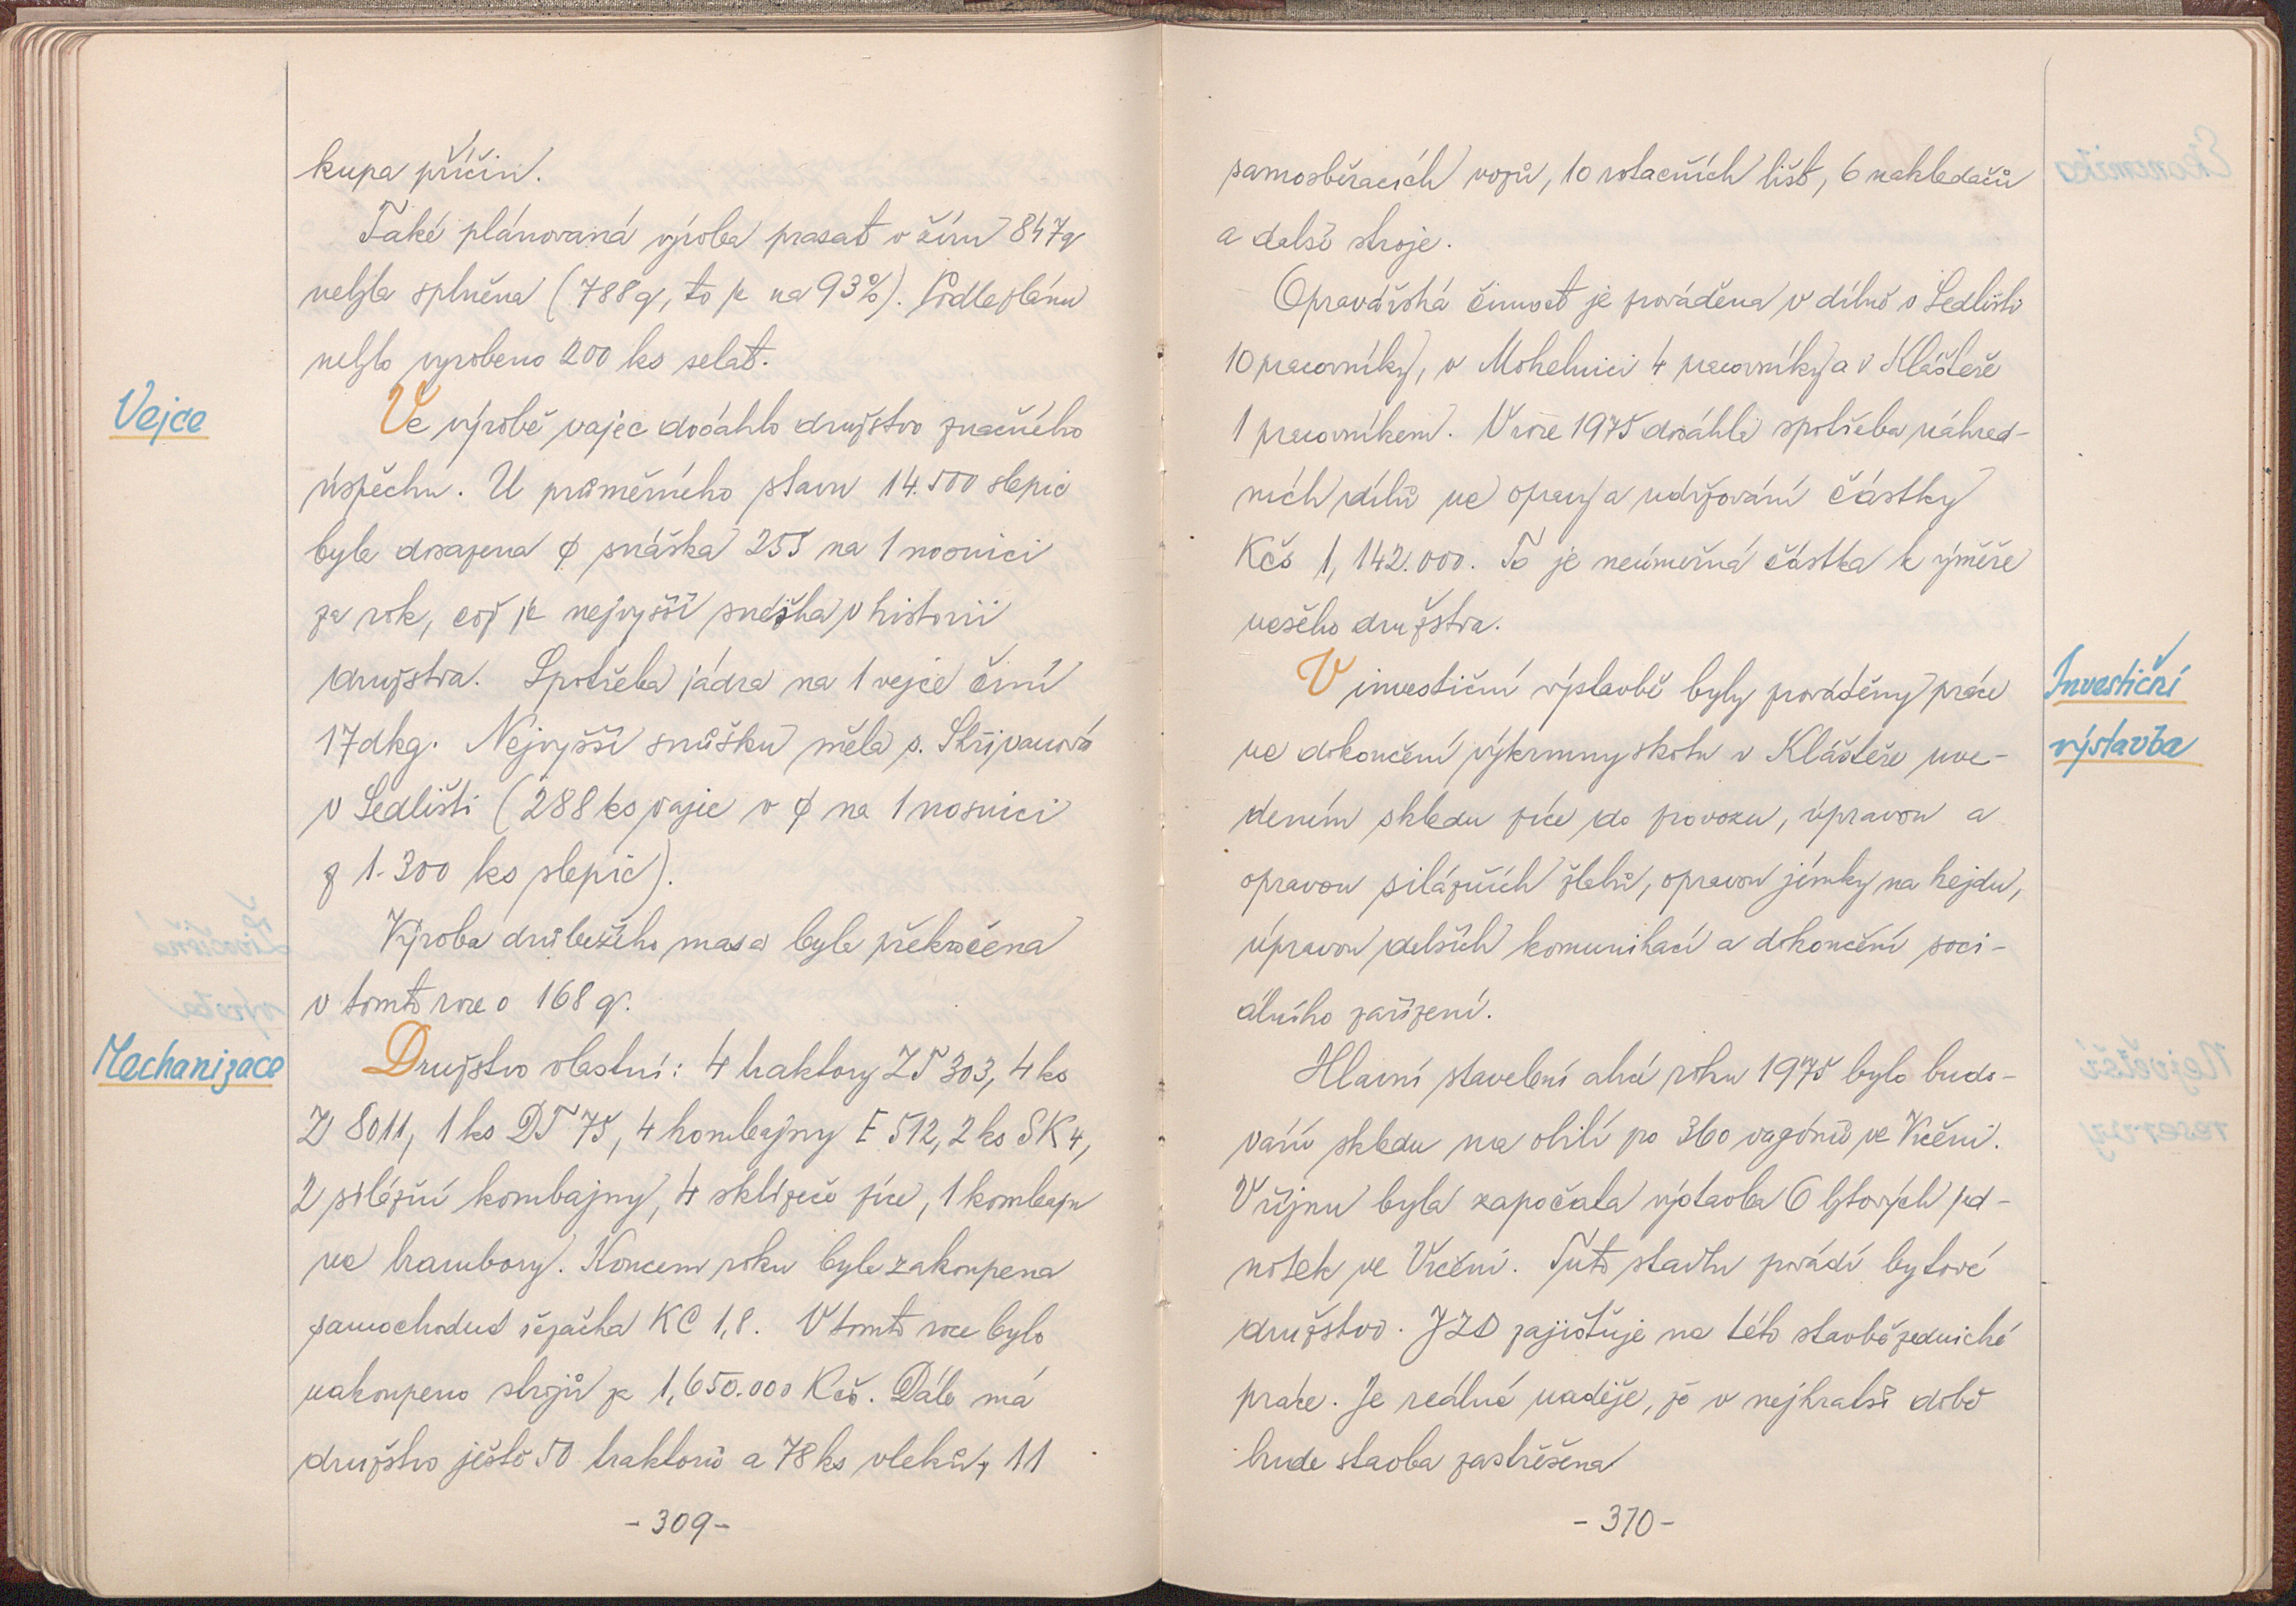 kupa příčin.
Také plánovaná výroba prasat v žíru 847q
nebyla splněna (788q, to je na 93%). Podle plánu
nebylo vyrobeno 200 ks selat.
Vejce
Ve výrobě vajec dosáhlo družstvo značného
úspěchu. U průměrného stavu 14.500 slepic
byla dosažena ϕ snáška 255 na 1 nosnici
za rok, což je nejvyšší snáška v historii
družstva. Spotřeba jádra na 1 vejce činí
17dkg. Nejvyšší snůšku měla s. Skřivanová
v Sedlišti (288 ks vajec v ϕ na 1 nosnici
z 1.300 ks slepic).
Výroba drůbežího masa byla překročena
v tomto roce o 168 q.
Mechanizace
Družstvo vlastní: 4 traktory ZT 303, 4 ks
Z 8011, 1 ks DT 75, 4 kombajny E 512, 2 ks SK 4,
2 silážní kombajny, 4 sklízeče píce, 1 kombajn
na brambory. Koncem roku byla zakoupena
samochodná řezačka KC 1,8. V tomto roce bylo
nakoupeno strojů za 1,650.000 Kčs. Dále má
družstvo ještě 50 traktorů a 78 ks vleků, 11
- 309 -
samosběracích vozů, 10 rotačních lišt, 6 nakladačů
a další stroje.
Opravářská činnost je prováděna v dílně v Sedlišti
10 pracovníky, v Mohelnici 4 pracovníky a v Klášteře
1 pracovníkem. V roce 1975 dosáhla spotřeba náhrad-
ních dílů na opravy a udržování částky
Kčs 1,142.000. To je neúměrná částka k výměře
našeho družstva.
Investiční
výstavba
V investiční výstavbě byly prováděny práce
na dokončení výkrmny skotu v Klášteře uve-
dením skladu píce do provozu, úpravou a
opravou silážních žlabů, opravou jímky na hejdu,
úpravou dalších komunikací a dokončení soci-
álního zařízení.
Hlavní stavební akcí roku 1975 bylo budo-
vání skladu na obilí po 360 vagónů ve Vrčeni.
V říjnu byla započata výstavba 6 bytových jed-
notek ve Vrčeni. Tuto stavbu provádí bytové
družstvo. JZD zajišťuje na této stavbě zednické
práce. Je reálná naděje, že v nejkratší době
bude stavba zastřešena
- 310 -